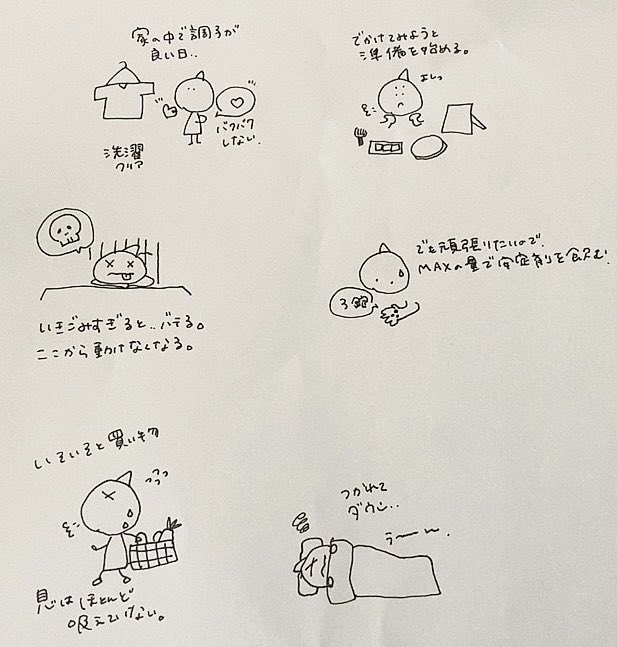 家の中で調子が
良い日..
洗濯
クリア
バクバク
しない.
でかけてみようと
準備を始める。
よしっ
いきごみすぎると..バテる。
ここから動けなくなる。
でも頑張りたいので、
MAXの量で安定剤を飲む.
3錠
いそいそと買い物
フラフラ
息はほとんど
吸えていない。
つかれて
ダウン..
うーーん.